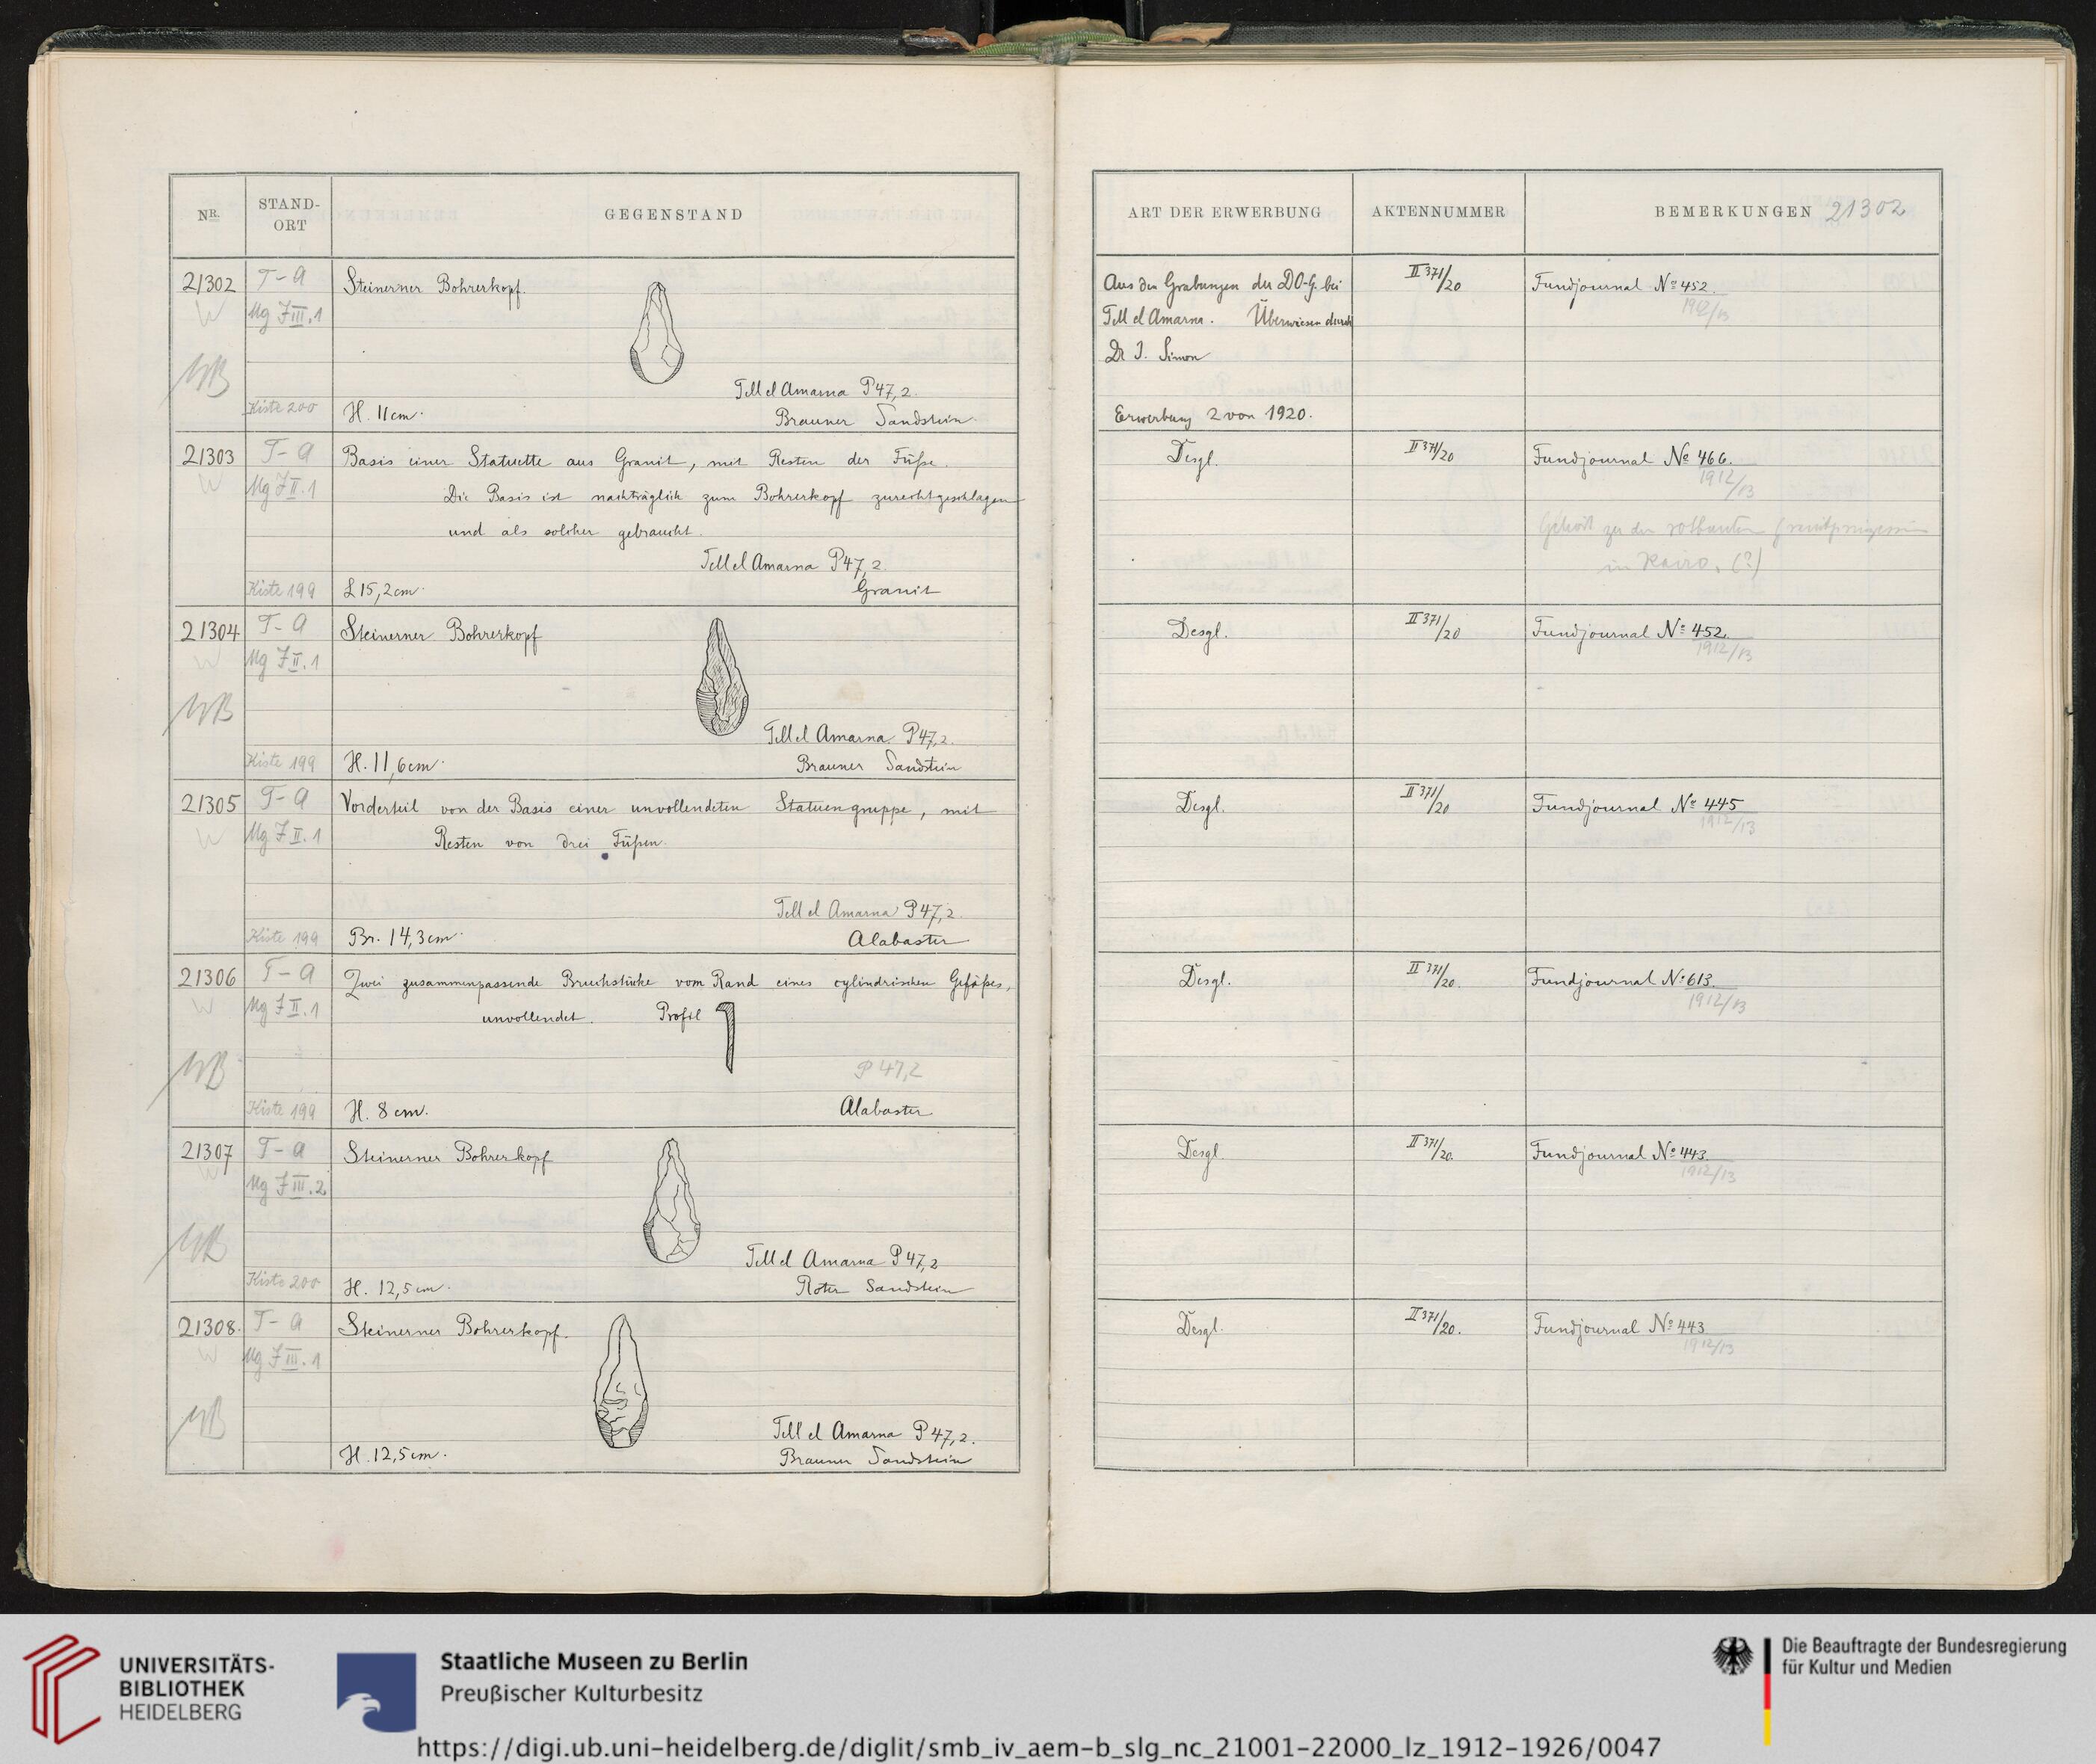 NR.
STAND-
ORT
GEGENSTAND
21302
T-A
Steinerner Bohrerkopf.
W
Mg J III.1
Tell el Amarna P47,2.
Kiste 200
H. 11cm.
Brauner Sandstein.
21303
T-A
Basis einer Statuette aus Granit, mit Resten der Füße.
W
Mg J II.1
Die Basis ist nachträglich zum Bohrerkopf zurechtgeschlagen
und als solcher gebraucht.
Tell el Amarna P47,2.
Kiste 199
L 15,2cm.
Granit
21304
T-A
Steinerner Bohrerkopf
W
Mg J II.1
Tell el Amarna P47,2.
Kiste 199
H. 11,6cm.
Brauner Sandstein
21305
T-A
Vorderteil von der Basis einer unvollendeten Statuengruppe, mit
W
Mg J II.1
Resten von drei Füßen.
Tell el Amarna P47,2.
Kiste 199
Br. 14,3cm.
Alabaster
21306
T-A
Zwei zusammenpassende Bruchstücke vom Rand eines cylindrischen Gefäßes,
W
Mg J II.1
unvollendet. Profil
P 47,2
Kiste 199
H. 8cm.
Alabaster
21307
T-A
Steinerner Bohrerkopf
W
Mg J III.2
Tell el Amarna P47,2
Kiste 200
H. 12,5cm.
Roter Sandstein
21308.
T-A
Steinerner Bohrerkopf.
W
Mg J III.1
Tell el Amarna P47,2.
H. 12,5cm.
Brauner Sandstein
ART DER ERWERBUNG
AKTENNUMMER
BEMERKUNGEN 21302
Aus den Grabungen der DO-G. bei
II 371/20
Fundjournal No 452.
1912/13
Tell el Amarna. Überwiesen durch
Dr J. Simon
Erwerbung 2 von 1920.
Desgl.
II 371/20
Fundjournal No 466.
1912/13
Gehört zu der
in Kairo. (?)
Desgl.
II 371/20
Fundjournal No 452.
1912/13
Desgl.
II 371/20
Fundjournal No 445
1912/13
Desgl.
II 371/20.
Fundjournal No 613.
1912/13
Desgl.
II 371/20.
Fundjournal No 443.
1912/13
Desgl.
II 371/20.
Fundjournal No 443
1912/13
UNIVERSITÄTS-
BIBLIOTHEK
HEIDELBERG
Staatliche Museen zu Berlin
Preußischer Kulturbesitz
Die Beauftragte der Bundesregierung
für Kultur und Medien
https://digi.ub.uni-heidelberg.de/diglit/smb_iv_aem-b_slg_nc_21001-22000_lz_1912-1926/0047